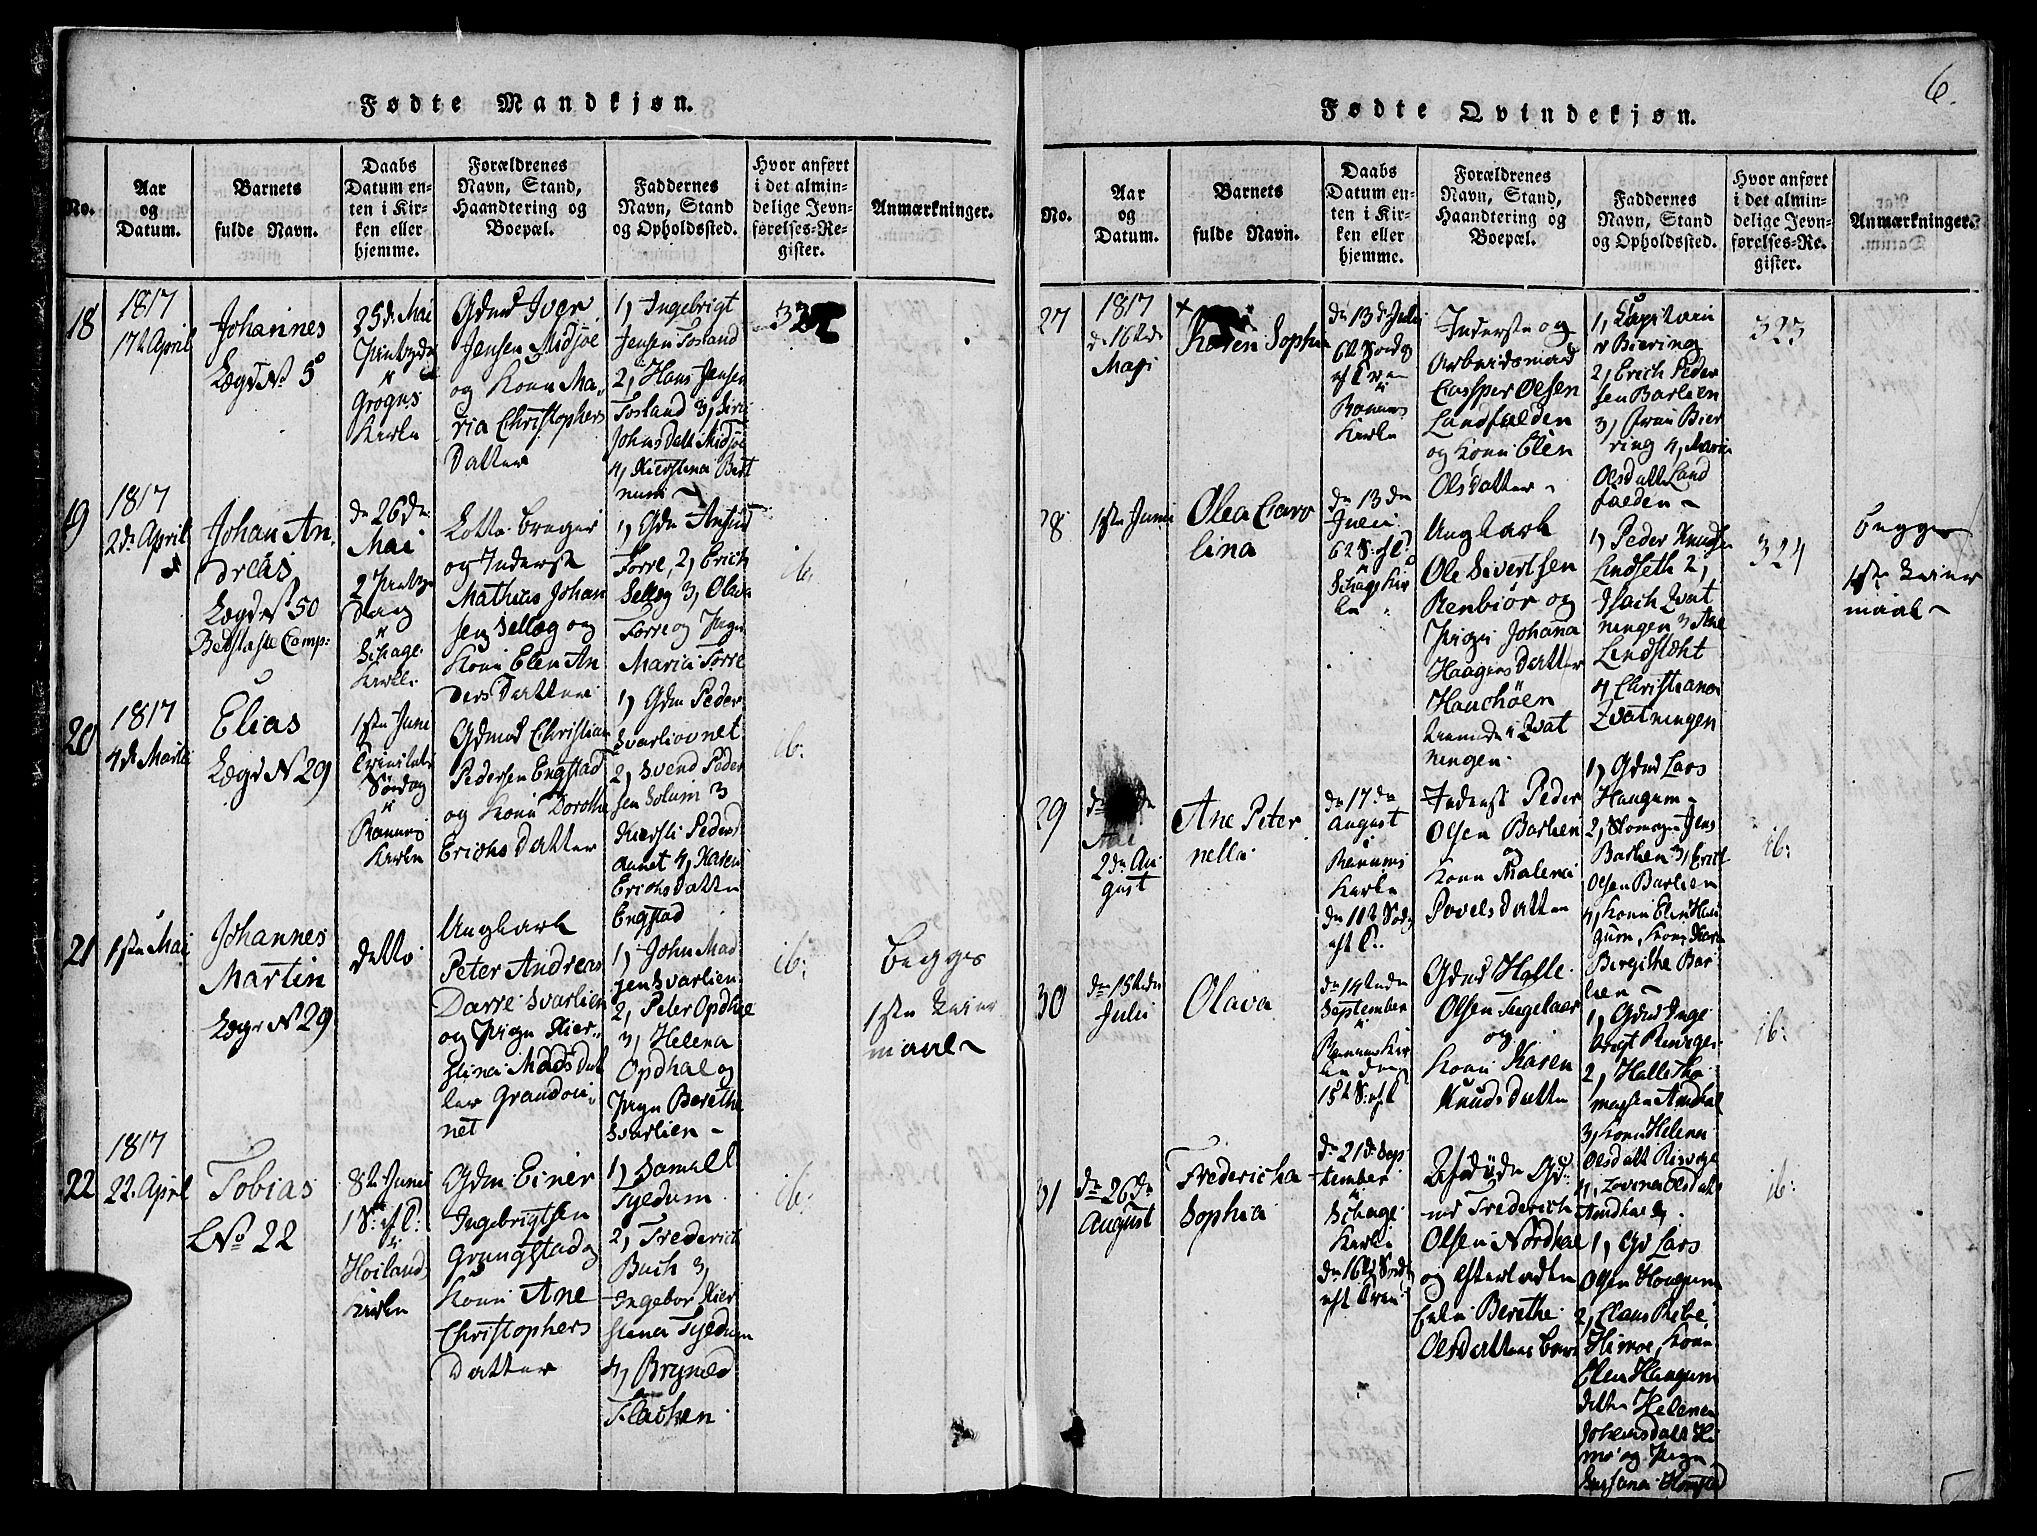 6.
Fødte Mandkjøn.
No.
Aar
og
Datum.
Barnets
fulde Navn.
Daabs
Datum en-
ten i Kir-
ken eller
hjemme.
Forældrenes
Navn, Stand,
Haandtering og
Boepæl.
Faddernes
Navn, Stand
og Opholdssted.
Hvor anført
i det almin-
delige Jevn-
førelses-Re-
gister.
Anmærkninger.
18
1817
17de April
Johannes
Lægd No 5
25de Mai
Grogus
Kirke
Gdmd Iver
Jensen Midjøe
og Kone Ma-
ria Christophers
Datter
1, Ingebrigt
Jensen Fosland
2, Hans Jensen
Fosland 3, Siri
Johnsdatt Midjøe
4, Kierstina Bert
num
19
1817
2de April
Johan An-
dreas
Lægd No 50
de 26de
Mai
Dag
i
Schage
Kirke
og Inderst
Mathias Johan
sen Sellæg og
Kone Elen An
ders Datter
1, Gdm
Forre, 2, Erich
Sellæg 3, Olava
Forre og Pige
Maria Forre
ib.
20
1817
4de Martii
Elias
Lægd No 29
1ste Juni
Trinitatis
Søndag
i
Ranums
Kirke
Gdmd Christian
Pedersen Engstad
og Kone Dorothe
Erichs Datter
1, Gdm Peder
Svarliovnet
2, Svend Peder
sen Solum 3
Kiersti Peders
4, Karen
Erichsdatter
Engstad
ib.
21
1ste Mai
Johannes
Martin
Lægd No 29
detto
Ungkarl
Peter Andreas
Darre Svarlien
og Pige Kier-
stina Mads dat
ter Grandmoe
net
1, John Mad
sen Svarlien
2, Peter Opdhal
3, Helena
Opdhal og
Pige Berethe
Svarlien
ib.
begges
1ste Leier
maal
22
1817
22 April
Tobias
L No 22
8de Juni
1 S: ef T:
i
Høilands
Kirke
Gdm Einer
Ingebrigtsen
Grungstad og
Kone Ane
Christophers
Datter
1, Samuel
Tyldum
2, Frederich
Buch 3,
Ingebor Kier
stina Tyldum
4, Bryneld
Flasken
ib.
Fødte Qvindekjøn.
No.
Aar
og
Datum.
Barnets
fulde Navn.
Daabs
Datum en-
ten i Kir-
ken eller
hjemme.
Forældrenes
Navn, Stand,
Haandtering og
Boepæl.
Faddernes
Navn, Stand
og Opholdssted.
Hvor anført
i det almin-
delige Jevn-
førelses-Re-
gister.
Anmærkninger.
27
1817
d 16de
Maji
Karen Sophia
de 13de Juli
6te Sondag
i
Ranums
Kirke
Inderste og
Arbeidsmand
Casper Olsen
Landfalden
og Kone Elen
Olsdatter
1, Capitain
v Biering
2, Erich Peder
sen Barlien
3, Frue Bier
ring 4, Maria
Olsdatt Land
falden
323
28
1ste Juni
Olea Caro
lina
de 13de
Julii
i
Schage Kir
ke
Ungkarl
Ole Sivertsen
Renbior og
Pige Johana
Haagens datter
Hauchøen
1, Peder Knudsen
Lindseth 2,
Isach Zvat
ningen 3 Ane
Lindstæht
4 Christiana
Zvatningen
324
begges
1ste Leier
maal
29
2de Au
gust
Ane Peter
nella
de 17de
August
i
Ranums
Kirke
de 11te Sondag
eft T.
Inderst Peder
Olsen Barlien
og
Kone Malene
Povels Datter
1, Gdmd Lars
Haugum
2, Jens
Barlien 3, Erich
Olsen Barlien
4, Kone Elen Hau
gum, Kone Karen
Birgithe Bar
lien
ib:
30
den 15de
Julii
Olava
de 14de
September
i
Ranums Kir
ke den
15de S: eft T
Gdmd Halle
Olsen
og
Kone Karen
Knuds Datter
1, Gdmd Inge
brigt
2, Halle Tho
massen Amdhal
3, Kone Helena
Olsdatt
4, Olsdatt
Amdhal
ib:
31
den 26de
August
Fredericha
Sophia
de 21de Sep
tember
i
Schage
Kirke
de 16de Sondag
Afdøde Gd-
md Frederich
Olsen Nordhal
og efterladte
Enke Berethe
Olsdatters barn
1, Gd Lars
Olsen Haugum
2, Claus Ribe
Himoe, Kone
Elen Haugum
datter Helene
Johansdatt Hi
mo og Pige
ib: